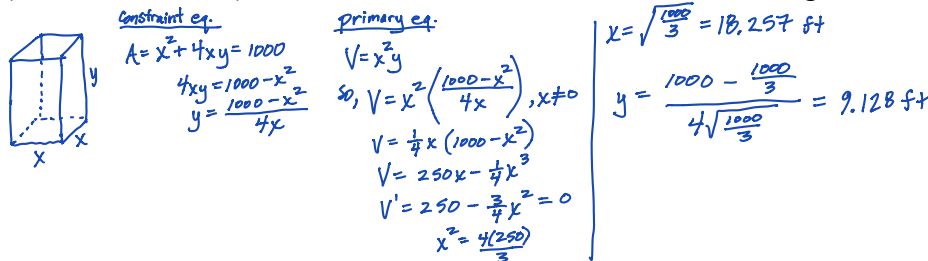 Constraint eq.
A = x² + 4xy = 1000
4xy = 1000 - x²
y = (1000 - x²)/(4x)
y
x
x
primary eq.
V = x²y
so, V = x² ((1000 - x²)/(4x)), x ≠ 0
V = 1/4 x (1000 - x²)
V = 250x - 1/4 x³
V' = 250 - 3/4 x² = 0
x² = 4(250)/3
x = √(1000/3) = 18.257 ft
y = (1000 - 1000/3)/(4√(1000/3)) = 9.128 ft